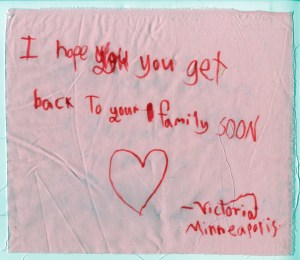 I hope you get
back To your family SOON
-Victoria
Minneapolis